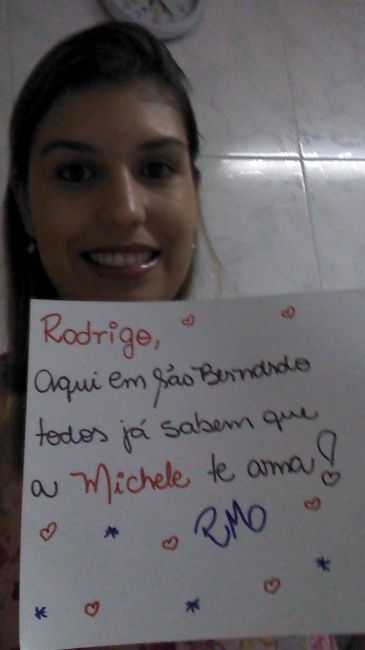 Rodrigo,
Aqui em São Bernardo
todos já sabem que
a Michele te ama!
RMO